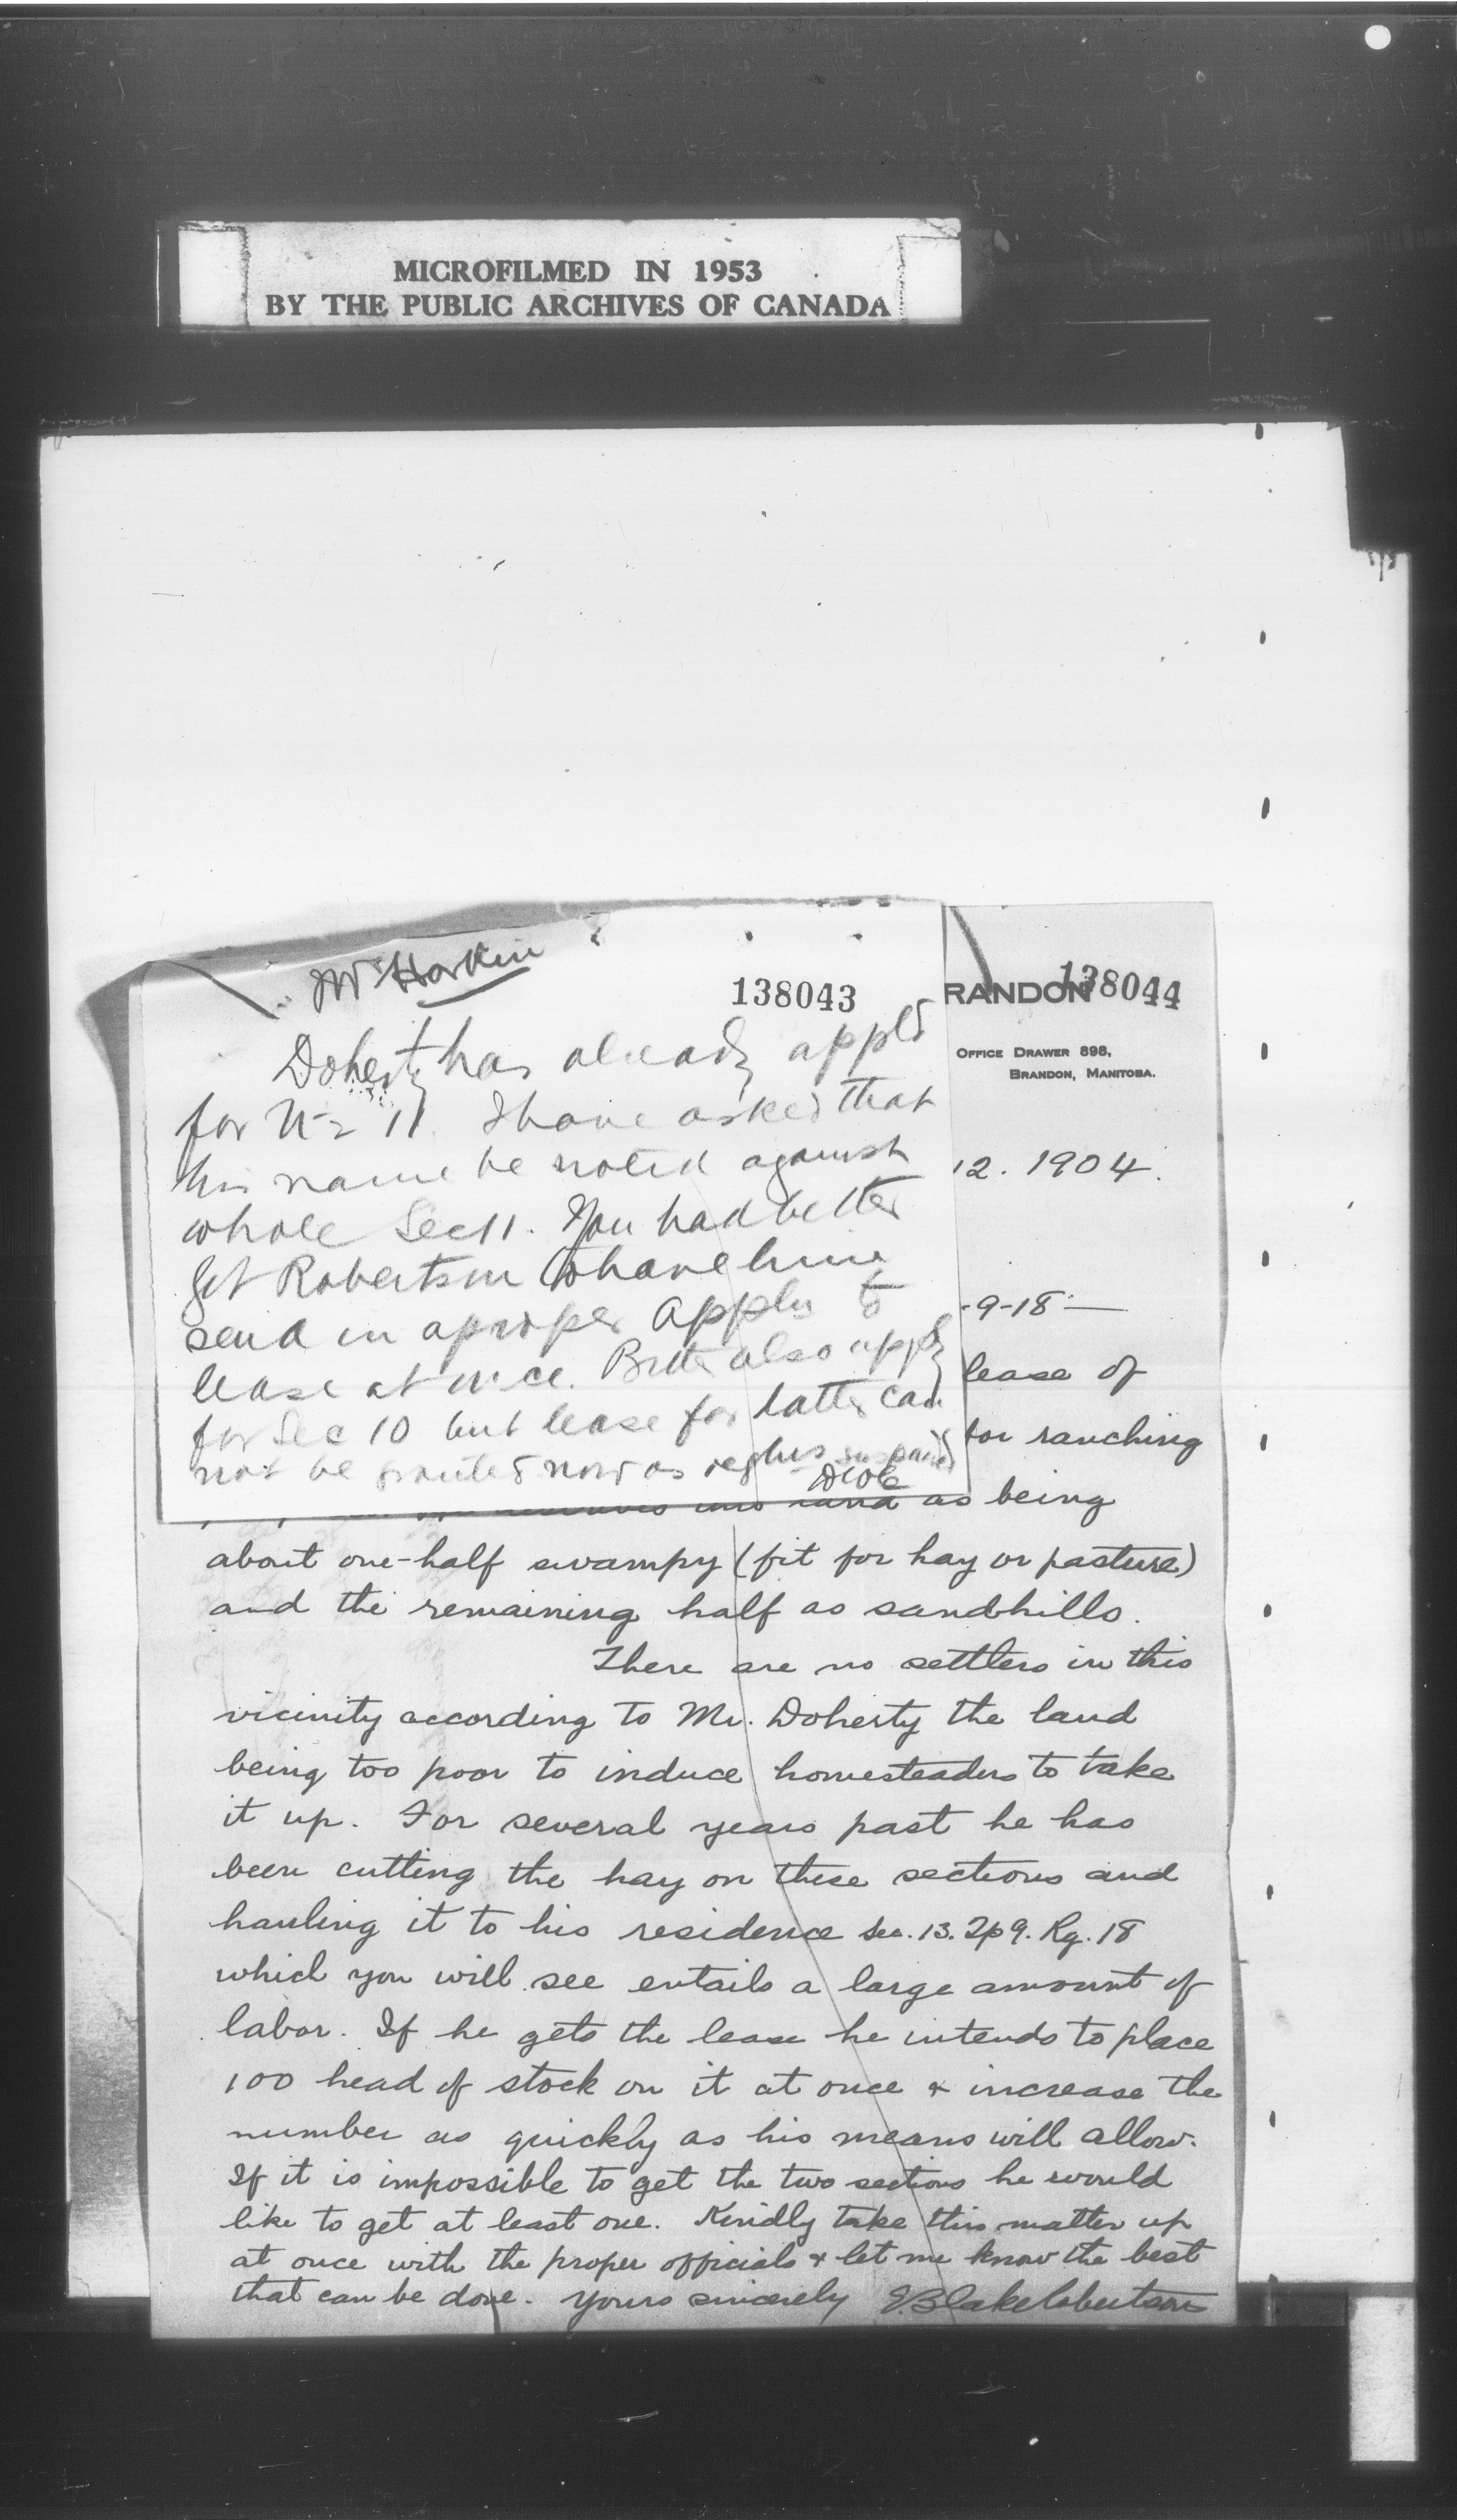 MICROFILMED IN 1953
BY THE PUBLIC ARCHIVES OF CANADA
Mr Harkin
138043
Doherty has already appld
for N½ 11. I have asked that
his name be noted against
whole Sec 11. You had better
get Robertson to have him
send in a proper appln to
lease at once. Better also apply
for Sec 10 but lease for latter can
not be granted now as regtns suspended
RANDON
138044
OFFICE DRAWER 898,
BRANDON, MANITOBA.
12. 1904.
-9-18-
lease of
for ranching
this land as being
about one-half swampy (fit for hay or pasture)
and the remaining half as sandhills.
There are no settlers in this
vicinity according to Mr. Doherty the land
being too poor to induce homesteaders to take
it up. For several years past he has
been cutting the hay on these sections and
hauling it to his residence Sec. 13. Tp 9. Rg. 18
which you will see entails a large amount of
labor. If he gets the lease he intends to place
100 head of stock on it at once & increase the
number as quickly as his means will allow.
If it is impossible to get the two sections he would
like to get at least one. Kindly take this matter up
at once with the proper officials & let me know the best
that can be done. Yours sincerely J. Blake Robertson